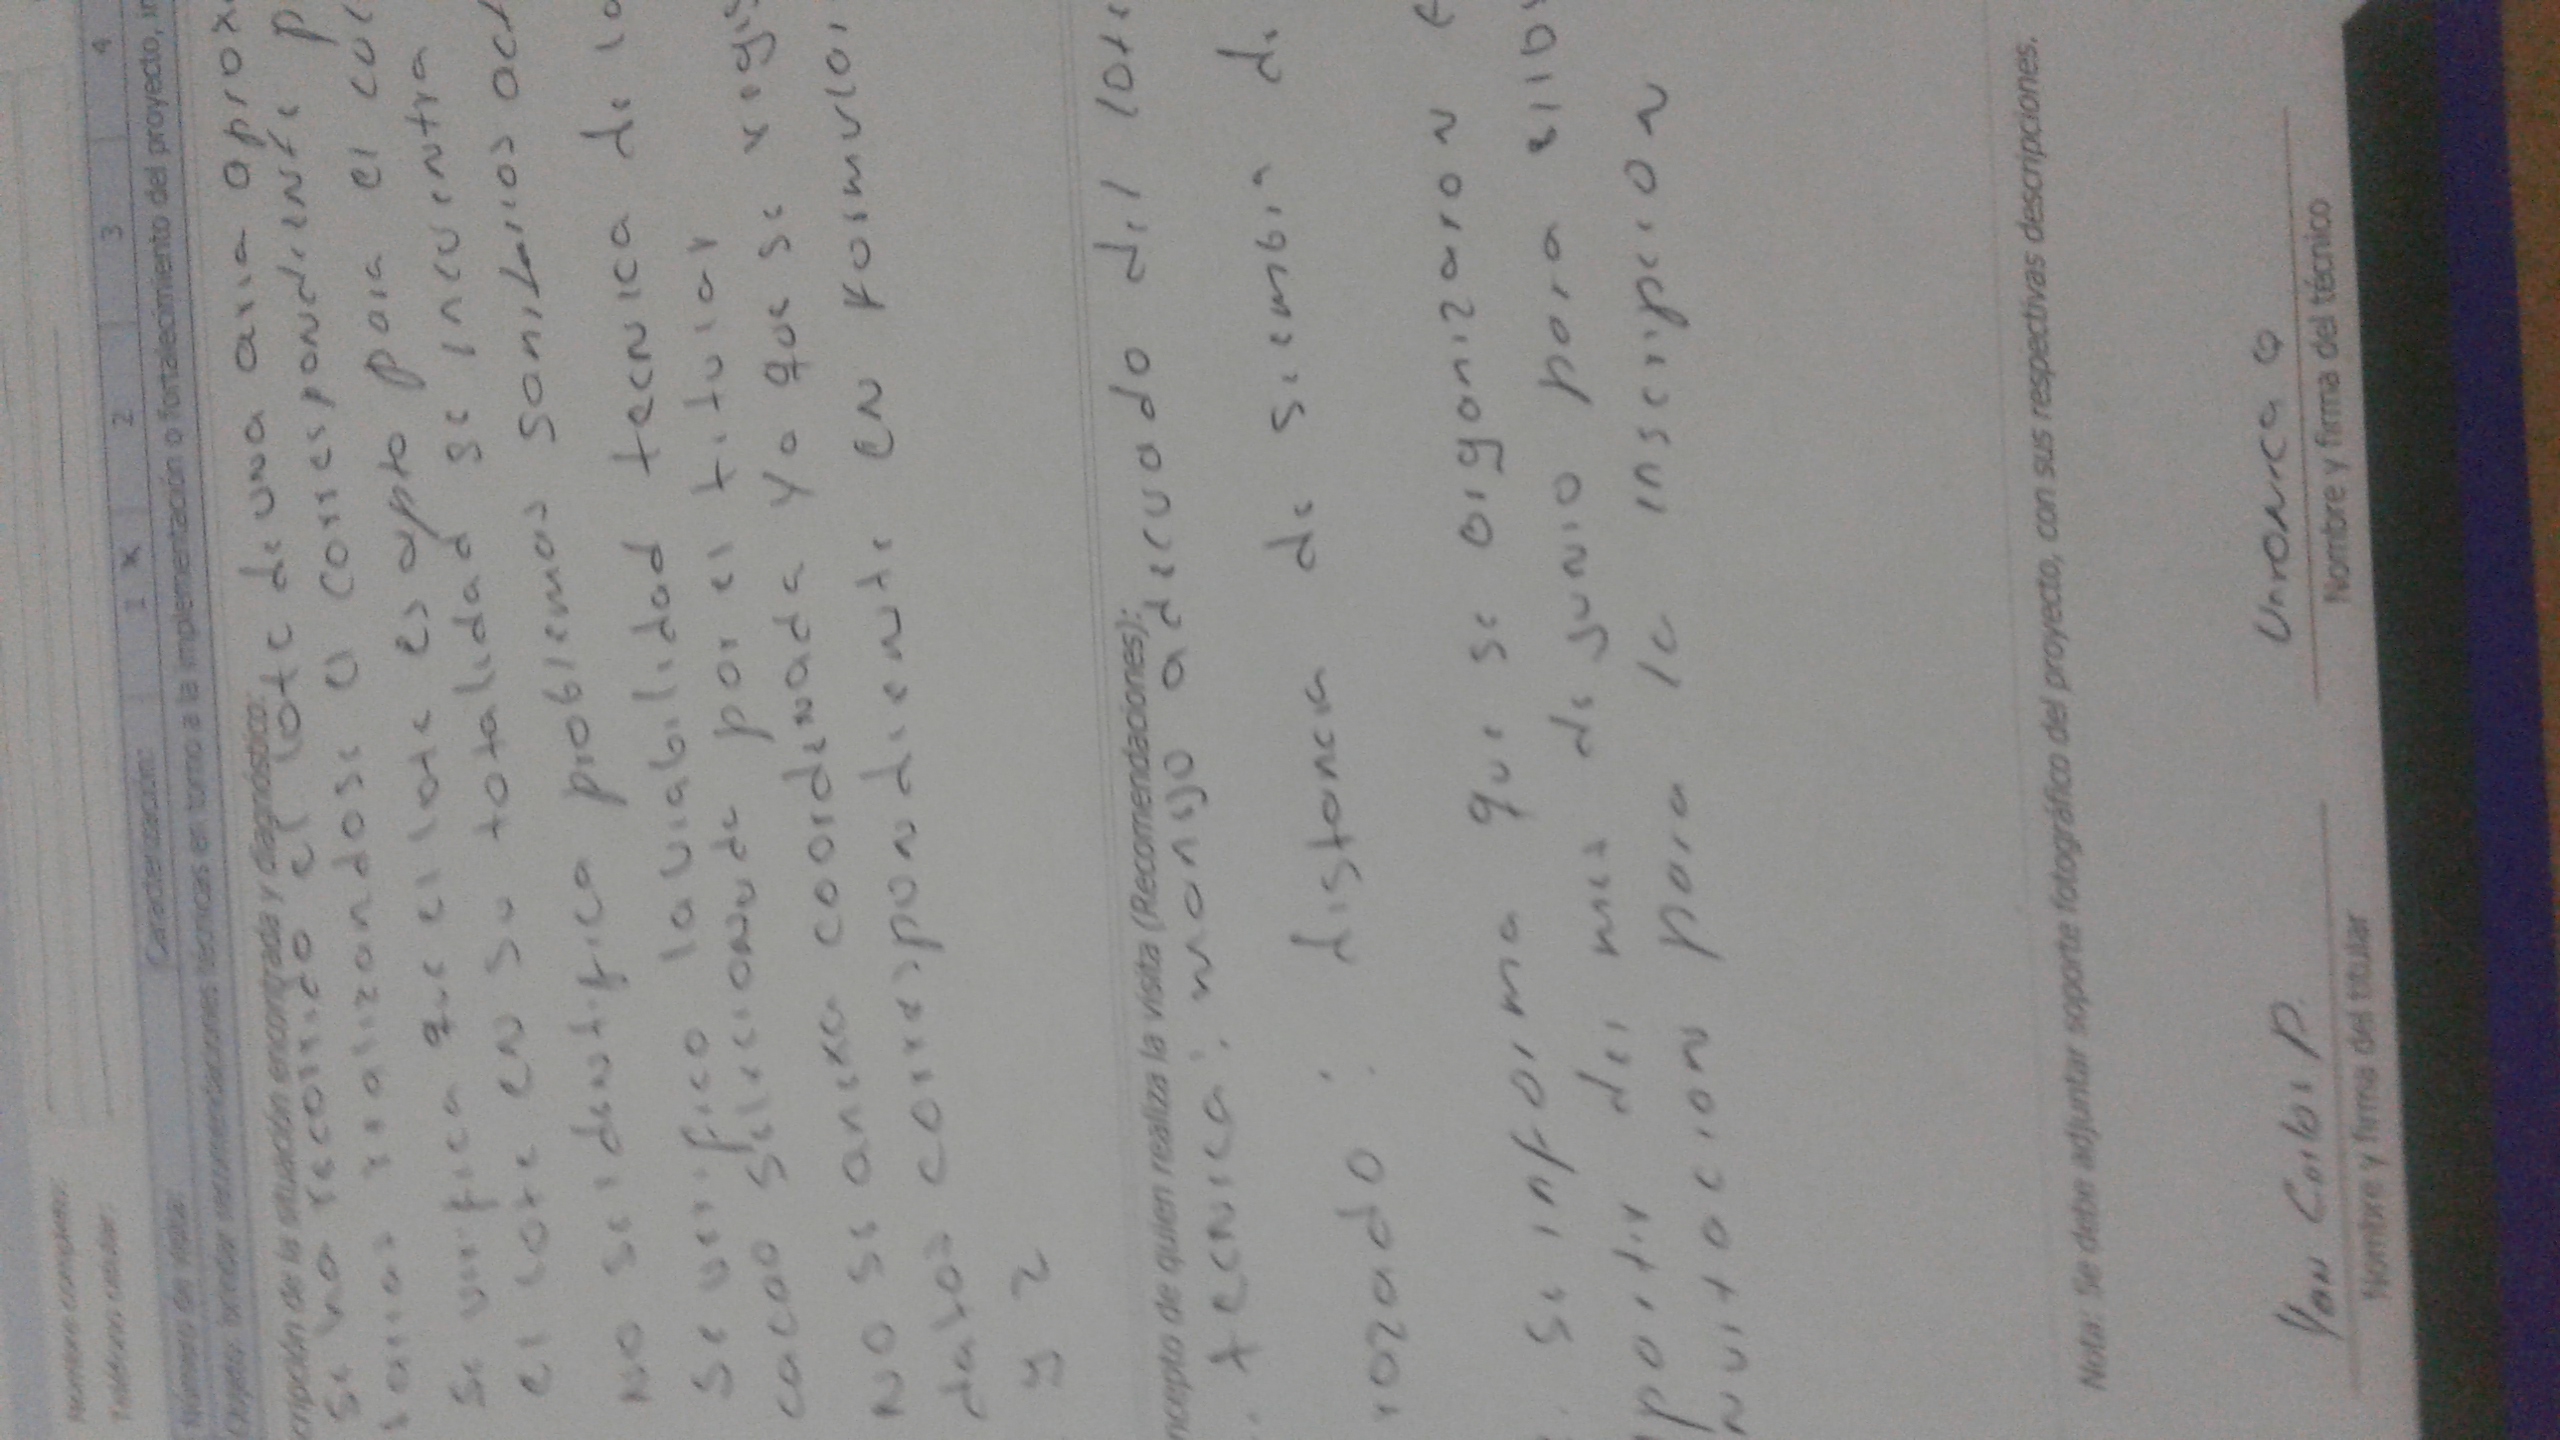 Nombre completo:
Teléfono celular:
Número de visita: Caracterización: 1 X 2 3 4
Objeto: brindar recomendaciones técnicas en torno a la implementación o fortalecimiento del proyecto, in
cripción de la situación encontrada y diagnóstico:
Se ha recorrido el lote de una aria aprox
realizandose o correspondiente p
Se verifica que el lote es apto para el cul
el lote en su totalidad se incuentra
No se identifica problemas sanitarios act
Se verifico la viabilidad tecnica de lo
cacao por el titular
No se anexa coordenada ya que se regis
datos correspondiente en formular
y 2
ncepto de quien realiza la visita (Recomendaciones):
tecnica: manejo adecuado del lote
rozado: distancia de siembra de
Se informa que se organizaron
partir del mes de junio para
para la inscripcion
Nota: Se debe adjuntar soporte fotográfico del proyecto, con sus respectivas descripciones.
Nombre y firma del titular Nombre y firma del técnico